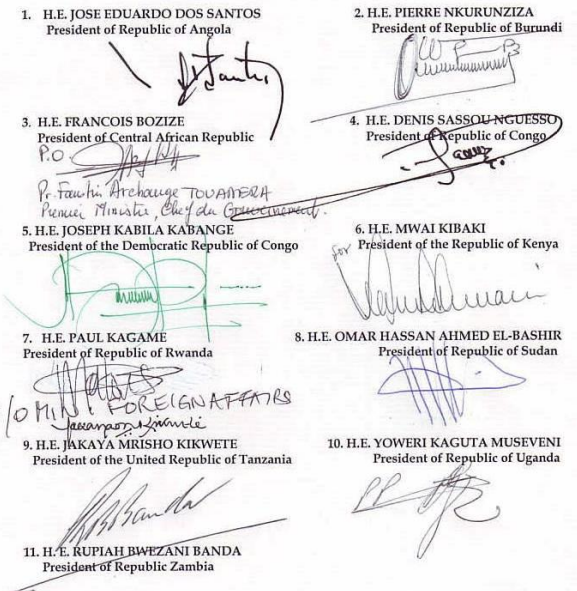 1. H.E. JOSE EDUARDO DOS SANTOS
President of Republic of Angola
2. H.E. PIERRE NKURUNZIZA
President of Republic of Burundi
3. H.E. FRANCOIS BOZIZE
President of Central African Republic
P.O.
Pr. Faustin Archange TOUADERA
Premier Ministre, Chef du Gouvernement.
4. H.E. DENIS SASSOU NGUESSO
President of Republic of Congo
5. H.E. JOSEPH KABILA KABANGE
President of the Democratic Republic of Congo
6. H.E. MWAI KIBAKI
for President of the Republic of Kenya
7. H.E. PAUL KAGAME
President of Republic of Rwanda
8. H.E. OMAR HASSAN AHMED EL-BASHIR
President of Republic of Sudan
FOREIGN AFFAIRS
9. H.E. JAKAYA MRISHO KIKWETE
President of the United Republic of Tanzania
10. H.E. YOWERI KAGUTA MUSEVENI
President of Republic of Uganda
PP
RBBanda
11. H. E. RUPIAH BWEZANI BANDA
President of Republic Zambia